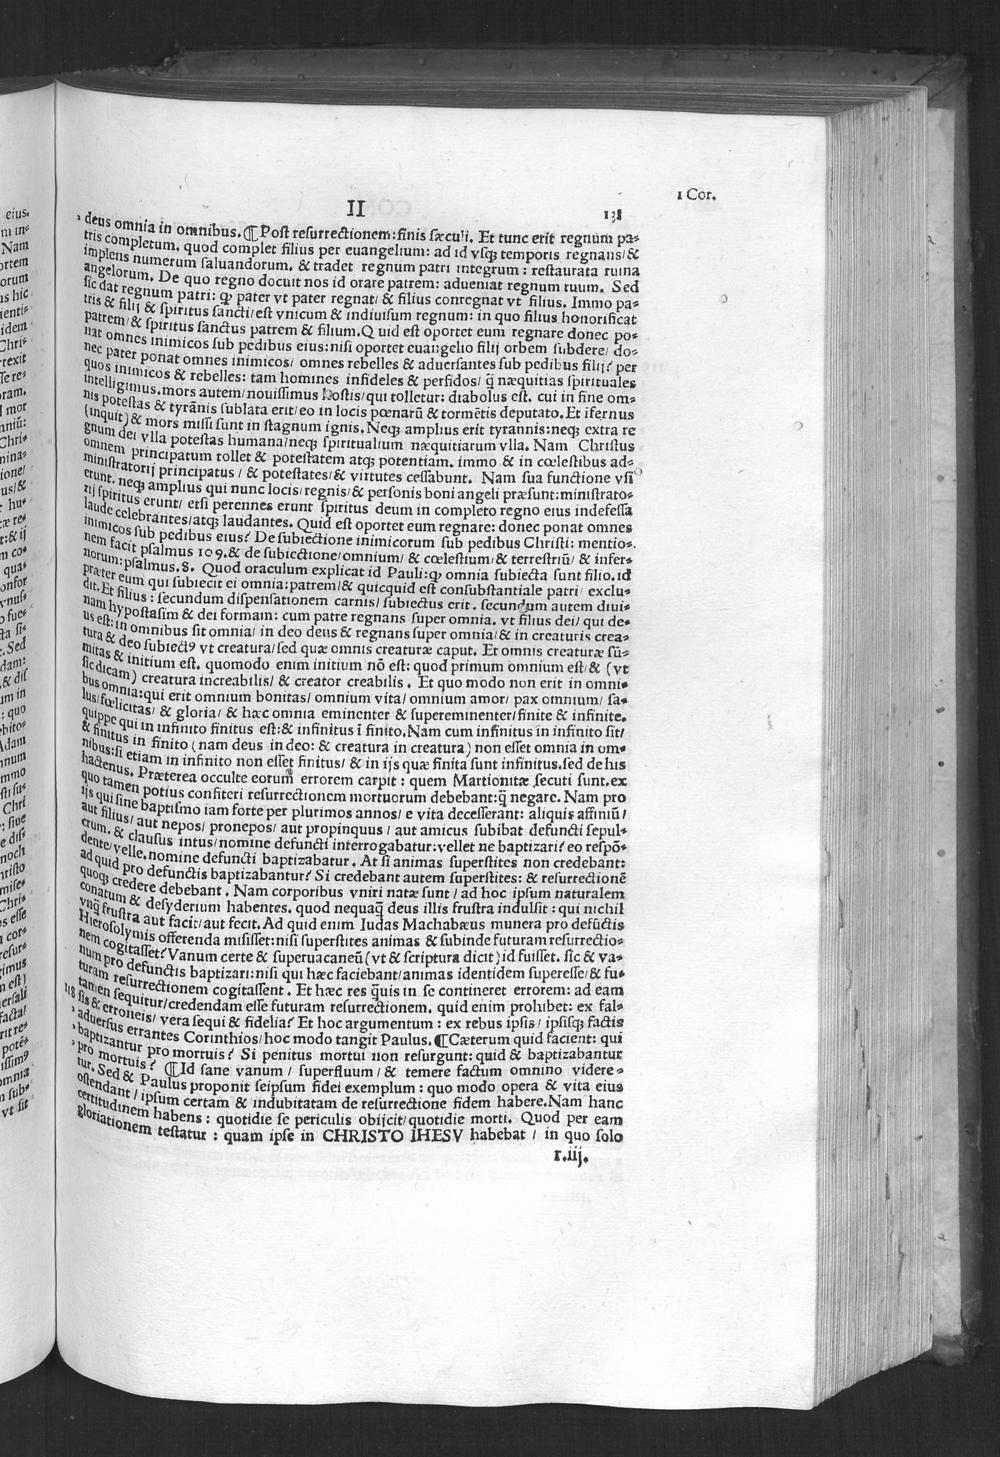 1 Cor.
II 138
deus omnia in omnibus. ¶ Post resurrectionem: finis sæculi. Et tunc erit regnum pa⸗
tris completum. quod complet filius per euangelium: ad id vsq; temporis regnans/ &
implens numerum saluandorum. & tradet regnum patri integrum: restaurata ruina
angelorum. De quo regno docuit nos id orare patrem: adueniat regnum tuum. Sed
sic dat regnum patri: ꝙ pater vt pater regnat/ & filius conregnat vt filius. Immo pa⸗
tris & filij & spiritus sancti/ est vnicum & indiuisum regnum: in quo filius honorificat
patrem/ & spiritus sanctus patrem & filium. Quid est oportet eum regnare donec po⸗
nat omnes inimicos sub pedibus eius: nisi oportet euangelio filij orbem subdere/ do⸗
nec pater ponat omnes inimicos/ omnes rebelles & aduersantes sub pedibus filij? per
quos inimicos & rebelles: tam homines infideles & perfidos/ q̃ næquitias spirituales
intelligimus. mors autem/ nouissimus hostis/ qui tolletur: diabolus est. cui in fine om⸗
nis potestas & tyrãnis sublata erit/ eo in locis pœnarũ & tormẽtis deputato. Et ifernus
(inquit) & mors missi sunt in stagnum ignis. Neq; amplius erit tyrannis: neq; extra re
gnum dei vlla potestas humana/ neq; spiritualium næquitiarum vlla. Nam Christus
omnem principatum tollet & potestatem atq; potentiam. immo & in cœlestibus ad⸗
ministratorij principatus/ & potestates/ & virtutes cessabunt. Nam sua functione vsi
erunt. neq; amplius qui nunc locis/ regnis/ & personis boni angeli præsunt: ministrato⸗
rij spiritus erunt/ etsi perennes erunt spiritus deum in completo regno eius indefessa
laude celebrantes/ atq; laudantes. Quid est oportet eum regnare: donec ponat omnes
inimicos sub pedibus eius? De subiectione inimicorum sub pedibus Christi: mentio⸗
nem facit psalmus 109. & de subiectione/ omnium/ & cœlestium/ & terrestriũ/ & infer⸗
norum: psalmus. 8. Quod oraculum explicat id Pauli: ꝙ omnia subiecta sunt filio. id
præter eum qui subiecit ei omnia: patrem/ & quicquid est consubstantiale patri exclu⸗
dit. Et filius: secundum dispensationem carnis/ subiectus erit. secundum autem diui⸗
nam hypostasim & dei formam: cum patre regnans super omnia. vt filius dei/ qui de⸗
us est: in omnibus sit omnia/ in deo deus & regnans super omnia/ & in creaturis crea⸗
tura & deo subiectꝰ vt creatura/ sed quæ omnis creaturæ caput. Et omnis creaturæ sũ⸗
mitas & initium est. quomodo enim initium nõ est: quod primum omnium est/ & (vt
sic dicam) creatura increabilis/ & creator creabilis. Et quo modo non erit in omni⸗
bus omnia: qui erit omnium bonitas/ omnium vita/ omnium amor/ pax omnium/ sa⸗
lus/ fœlicitas/ & gloria/ & hæc omnia eminenter & supereminenter/ finite & infinite.
quippe qui in infinito finitus est: & infinitus ĩ finito. Nam cum infinitus in infinito sit/
& finitus in finito (nam deus in deo: & creatura in creatura) non esset omnia in om⸗
nibus: si etiam in infinito non esset finitus/ & in ijs quæ finita sunt infinitus. sed de his
hactenus. Præterea occulte eorum errorem carpit: quem Martionitæ secuti sunt. ex
quo tamen potius confiteri resurrectionem mortuorum debebant: q̃ negare. Nam pro
ijs qui sine baptismo iam forte per plurimos annos/ e vita decesserant: aliquis affiniũ/
aut filius/ aut nepos/ pronepos/ aut propinquus/ aut amicus subibat defuncti sepul⸗
crum. & clausus intus/ nomine defuncti interrogabatur: vellet ne baptizari? eo respõ⸗
dente/ velle. nomine defuncti baptizabatur. At si animas superstites non credebant:
ad quid pro defunctis baptizabantur? Si credebant autem superstites: & resurrectionẽ
quoq; credere debebant. Nam corporibus vniri natæ sunt/ ad hoc ipsum naturalem
conatum & desyderium habentes. quod nequaq̃ deus illis frustra indulsit: qui nichil
vnq̃ frustra aut facit/ aut fecit. Ad quid enim Iudas Machabæus munera pro defũctis
Hierosolymis offerenda misisset: nisi superstites animas & subinde futuram resurrectio⸗
nem cogitasset? Vanum certe & superuacaneũ (vt & scriptura dicit) id fuisset. sic & va⸗
num pro defunctis baptizari: nisi qui hæc faciebant/ animas identidem superesse/ & fu⸗
turam resurrectionem cogitassent. Et hæc res q̃uis in se contineret errorem: ad eam
tamen sequitur/ credendam esse futuram resurrectionem. quid enim prohibet: ex fal⸗
118 sis & erroneis/ vera sequi & fidelia? Et hoc argumentum: ex rebus ipsis/ ipsisq; factis
aduersus errantes Corinthios/ hoc modo tangit Paulus. ¶ Cæterum quid facient: qui
baptizantur pro mortuis? Si penitus mortui non resurgunt: quid & baptizabantur
pro mortuis? ¶ Id sane vanum/ superfluum/ & temere factum omnino videre⸗
tur. Sed & Paulus proponit seipsum fidei exemplum: quo modo opera & vita eius
ostendant/ ipsum certam & indubitatam de resurrectione fidem habere. Nam hanc
certitudinem habens: quotidie se periculis obijcit/ quotidie morti. Quod per eam
gloriationem testatur: quam ipse in CHRISTO IHESV habebat/ in quo solo
r.iij.